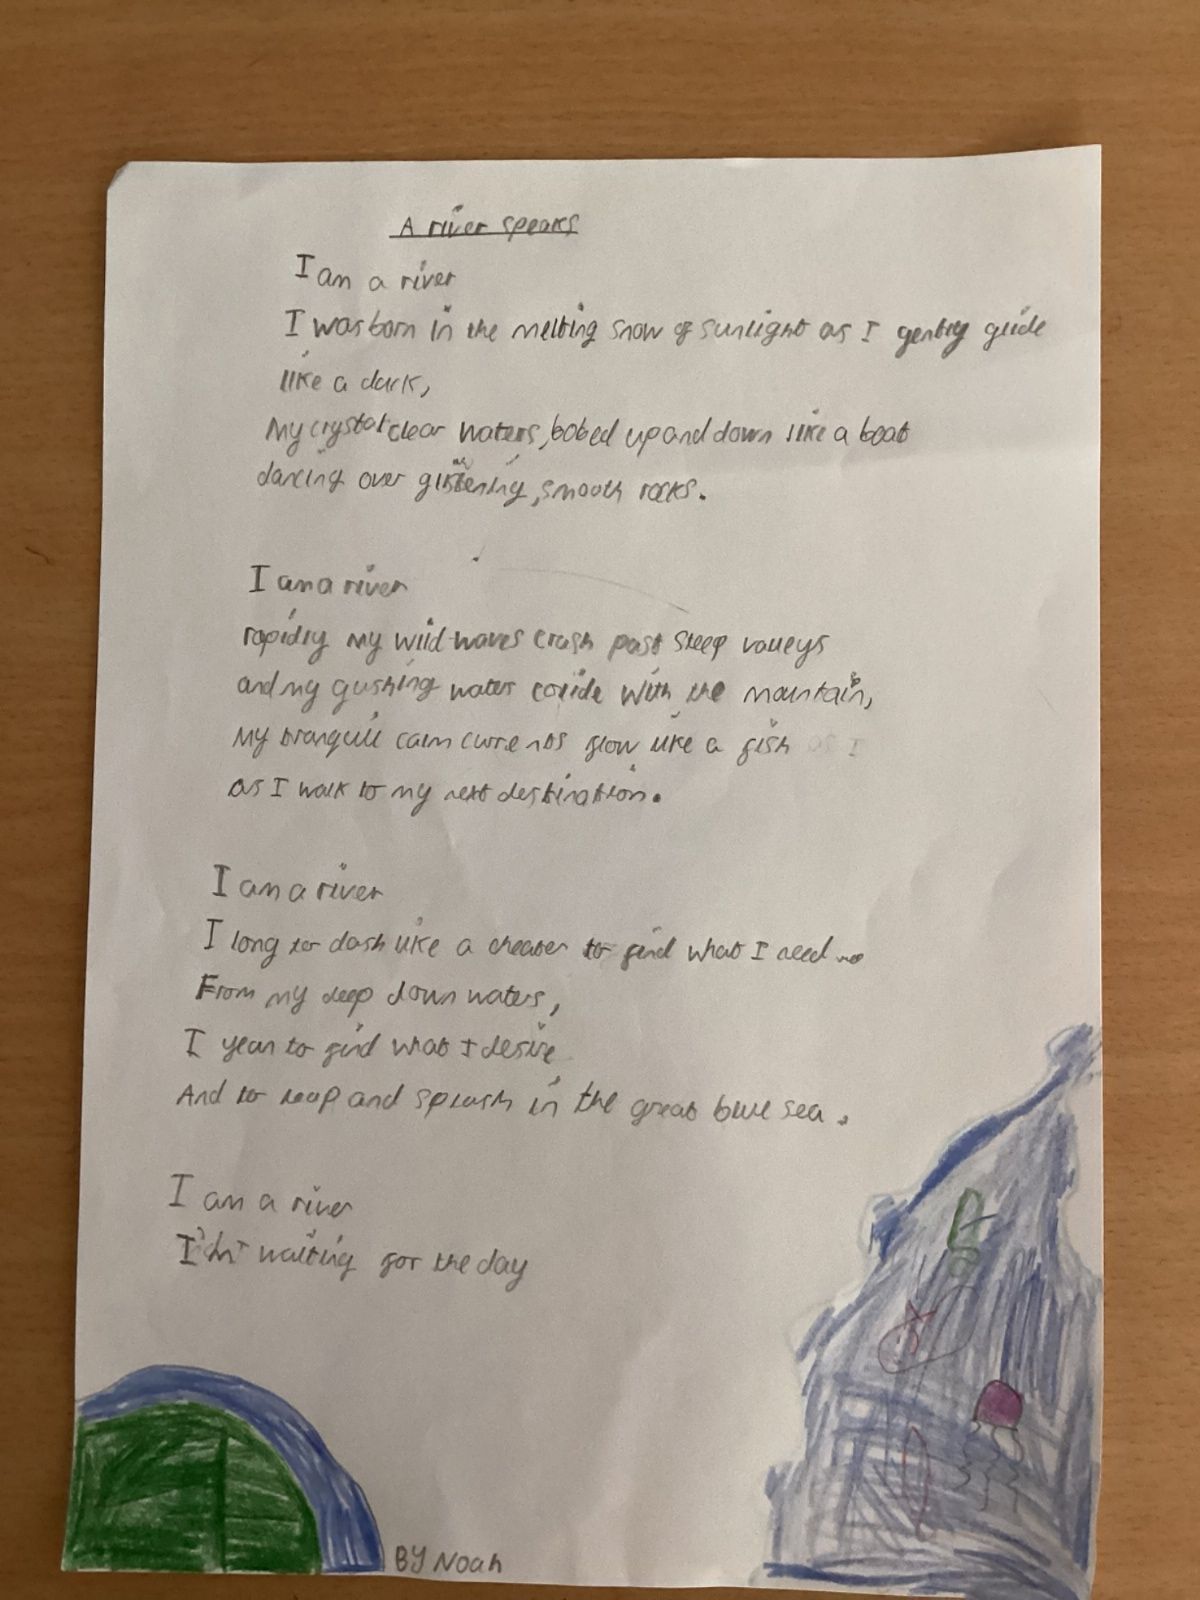 A river speaks
I am a river
I was born in the melting snow of sunlight as I gently glide
like a dark,
My crystal clear waters, bobed up and down like a boat
dancing over glistening, smooth rocks.
I am a river
rapidly my wild waves crash past steep valleys
and my gushing water colide with the mountain,
My tranquil calm currents flow like a fish as I
as I walk to my next destination.
I am a river
I long to dash like a cheater to find what I need
From my deep down waters,
I yean to find what I desire
And to leap and splash in the great blue sea.
I am a river
waiting for the day
BY Noah